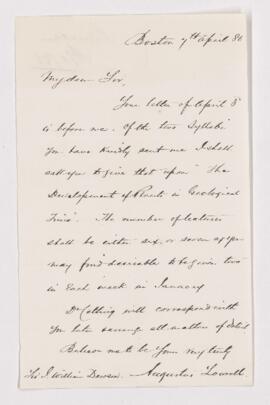 Boston 7th April 86
My dear Sir,
Your letter of April 5
is before me. Of the two Syllabi
you have kindly sent me I shall
ask you to give that upon "The
Development of Plants in Geological
Time". The number of lectures
shall be either six, or seven as you
may find desirable to be given two
in each week in January
Dr Cotting will correspond with
you later & arrange all matters of detail
Believe me to be Yours very truly
Augustus Lowell
J. William Dawson.